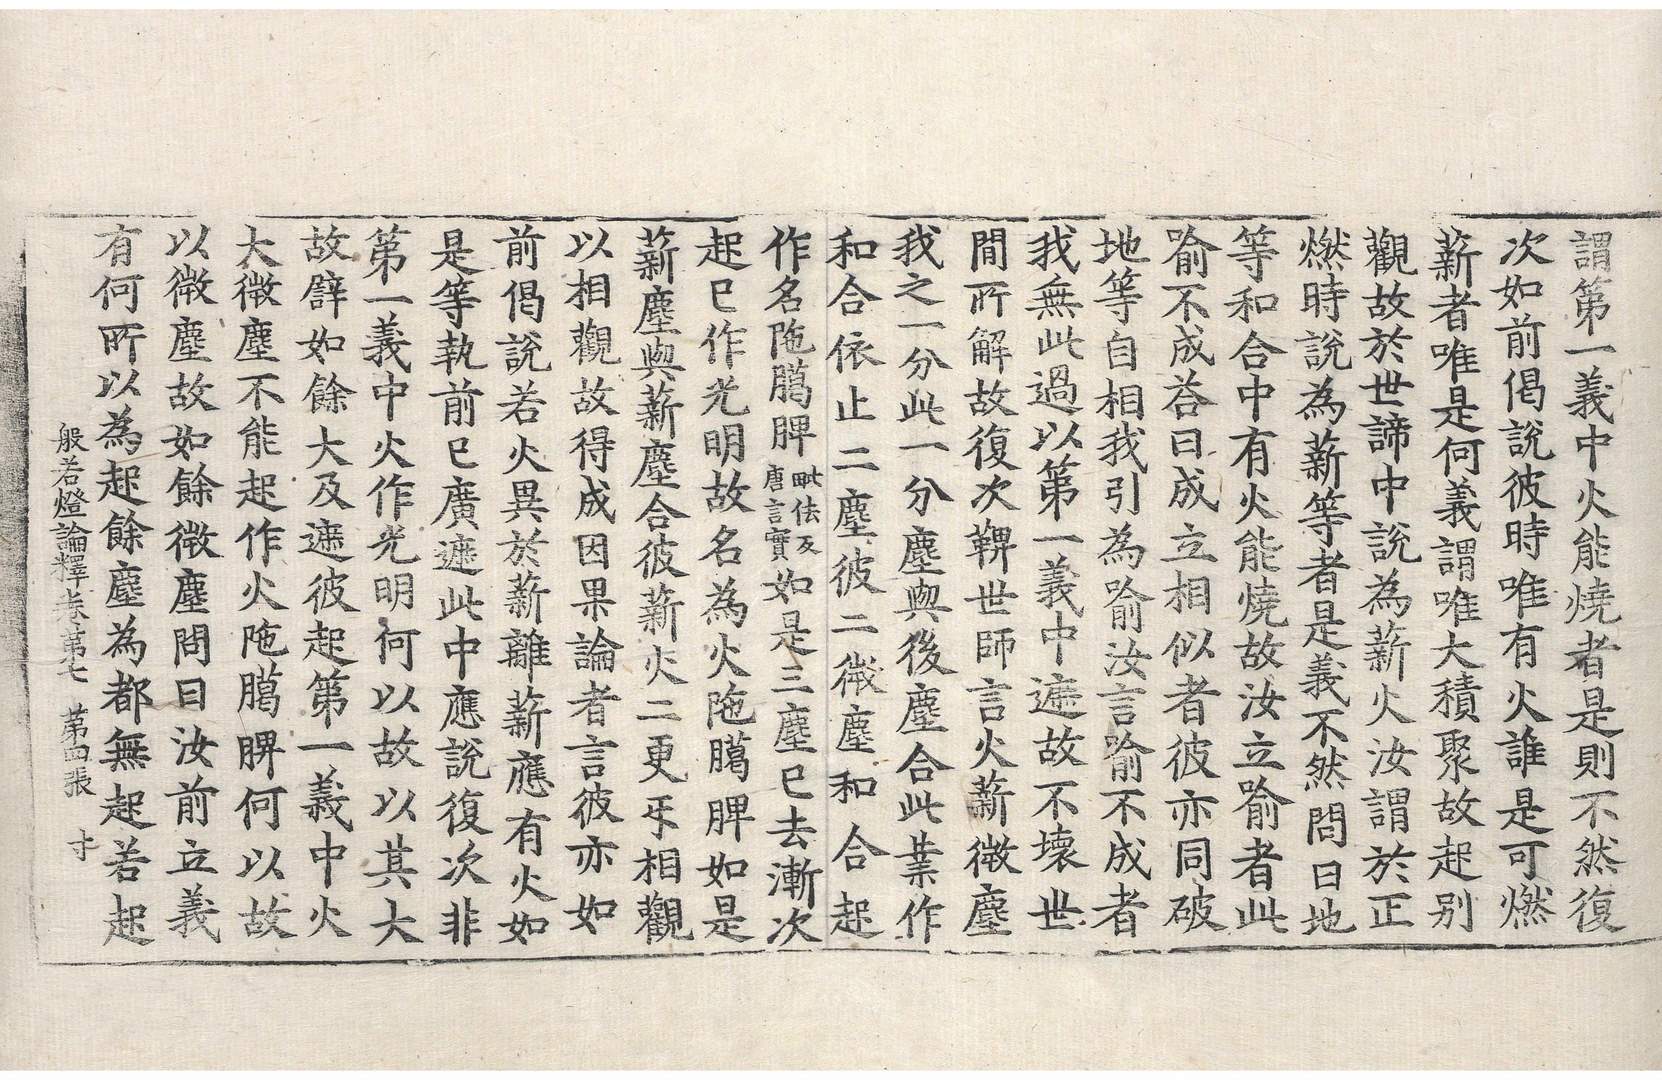 謂第一義中火能燒者是則不然復
次如前偈說彼時唯有火誰是可燃
薪者唯是何義謂唯大積聚故起別
觀故於世諦中說為薪火汝謂於正
燃時說為薪等者是義不然問曰地
等和合中有火能燒故汝立喻者此
喻不成荅曰成立相似者彼亦同破
地等自相我引為喻汝言喻不成者
我無此過以第一義中遮故不壞世
間所解故復次鞞世師言火薪微塵
我之一分此一分塵與後塵合此業作
和合依止二塵彼二微塵和合起
作名陁臈脾毗佉反唐言實如是三塵已去漸次
起已作光明故名為火陁臈脾如是
薪塵與薪塵合彼薪火二更㸦相觀
以相觀故得成因果論者言彼亦如
前偈說若火異於薪離薪應有火如
是等執前已廣遮此中應說復次非
第一義中火作光明何以故以其大
故譬如餘大及遮彼起第一義中火
大微塵不能起作火陁臈脾何以故
以微塵故如餘微塵問曰汝前立義
有何所以為起餘塵為都無起若起
般若燈論釋卷第七 第四張 寸